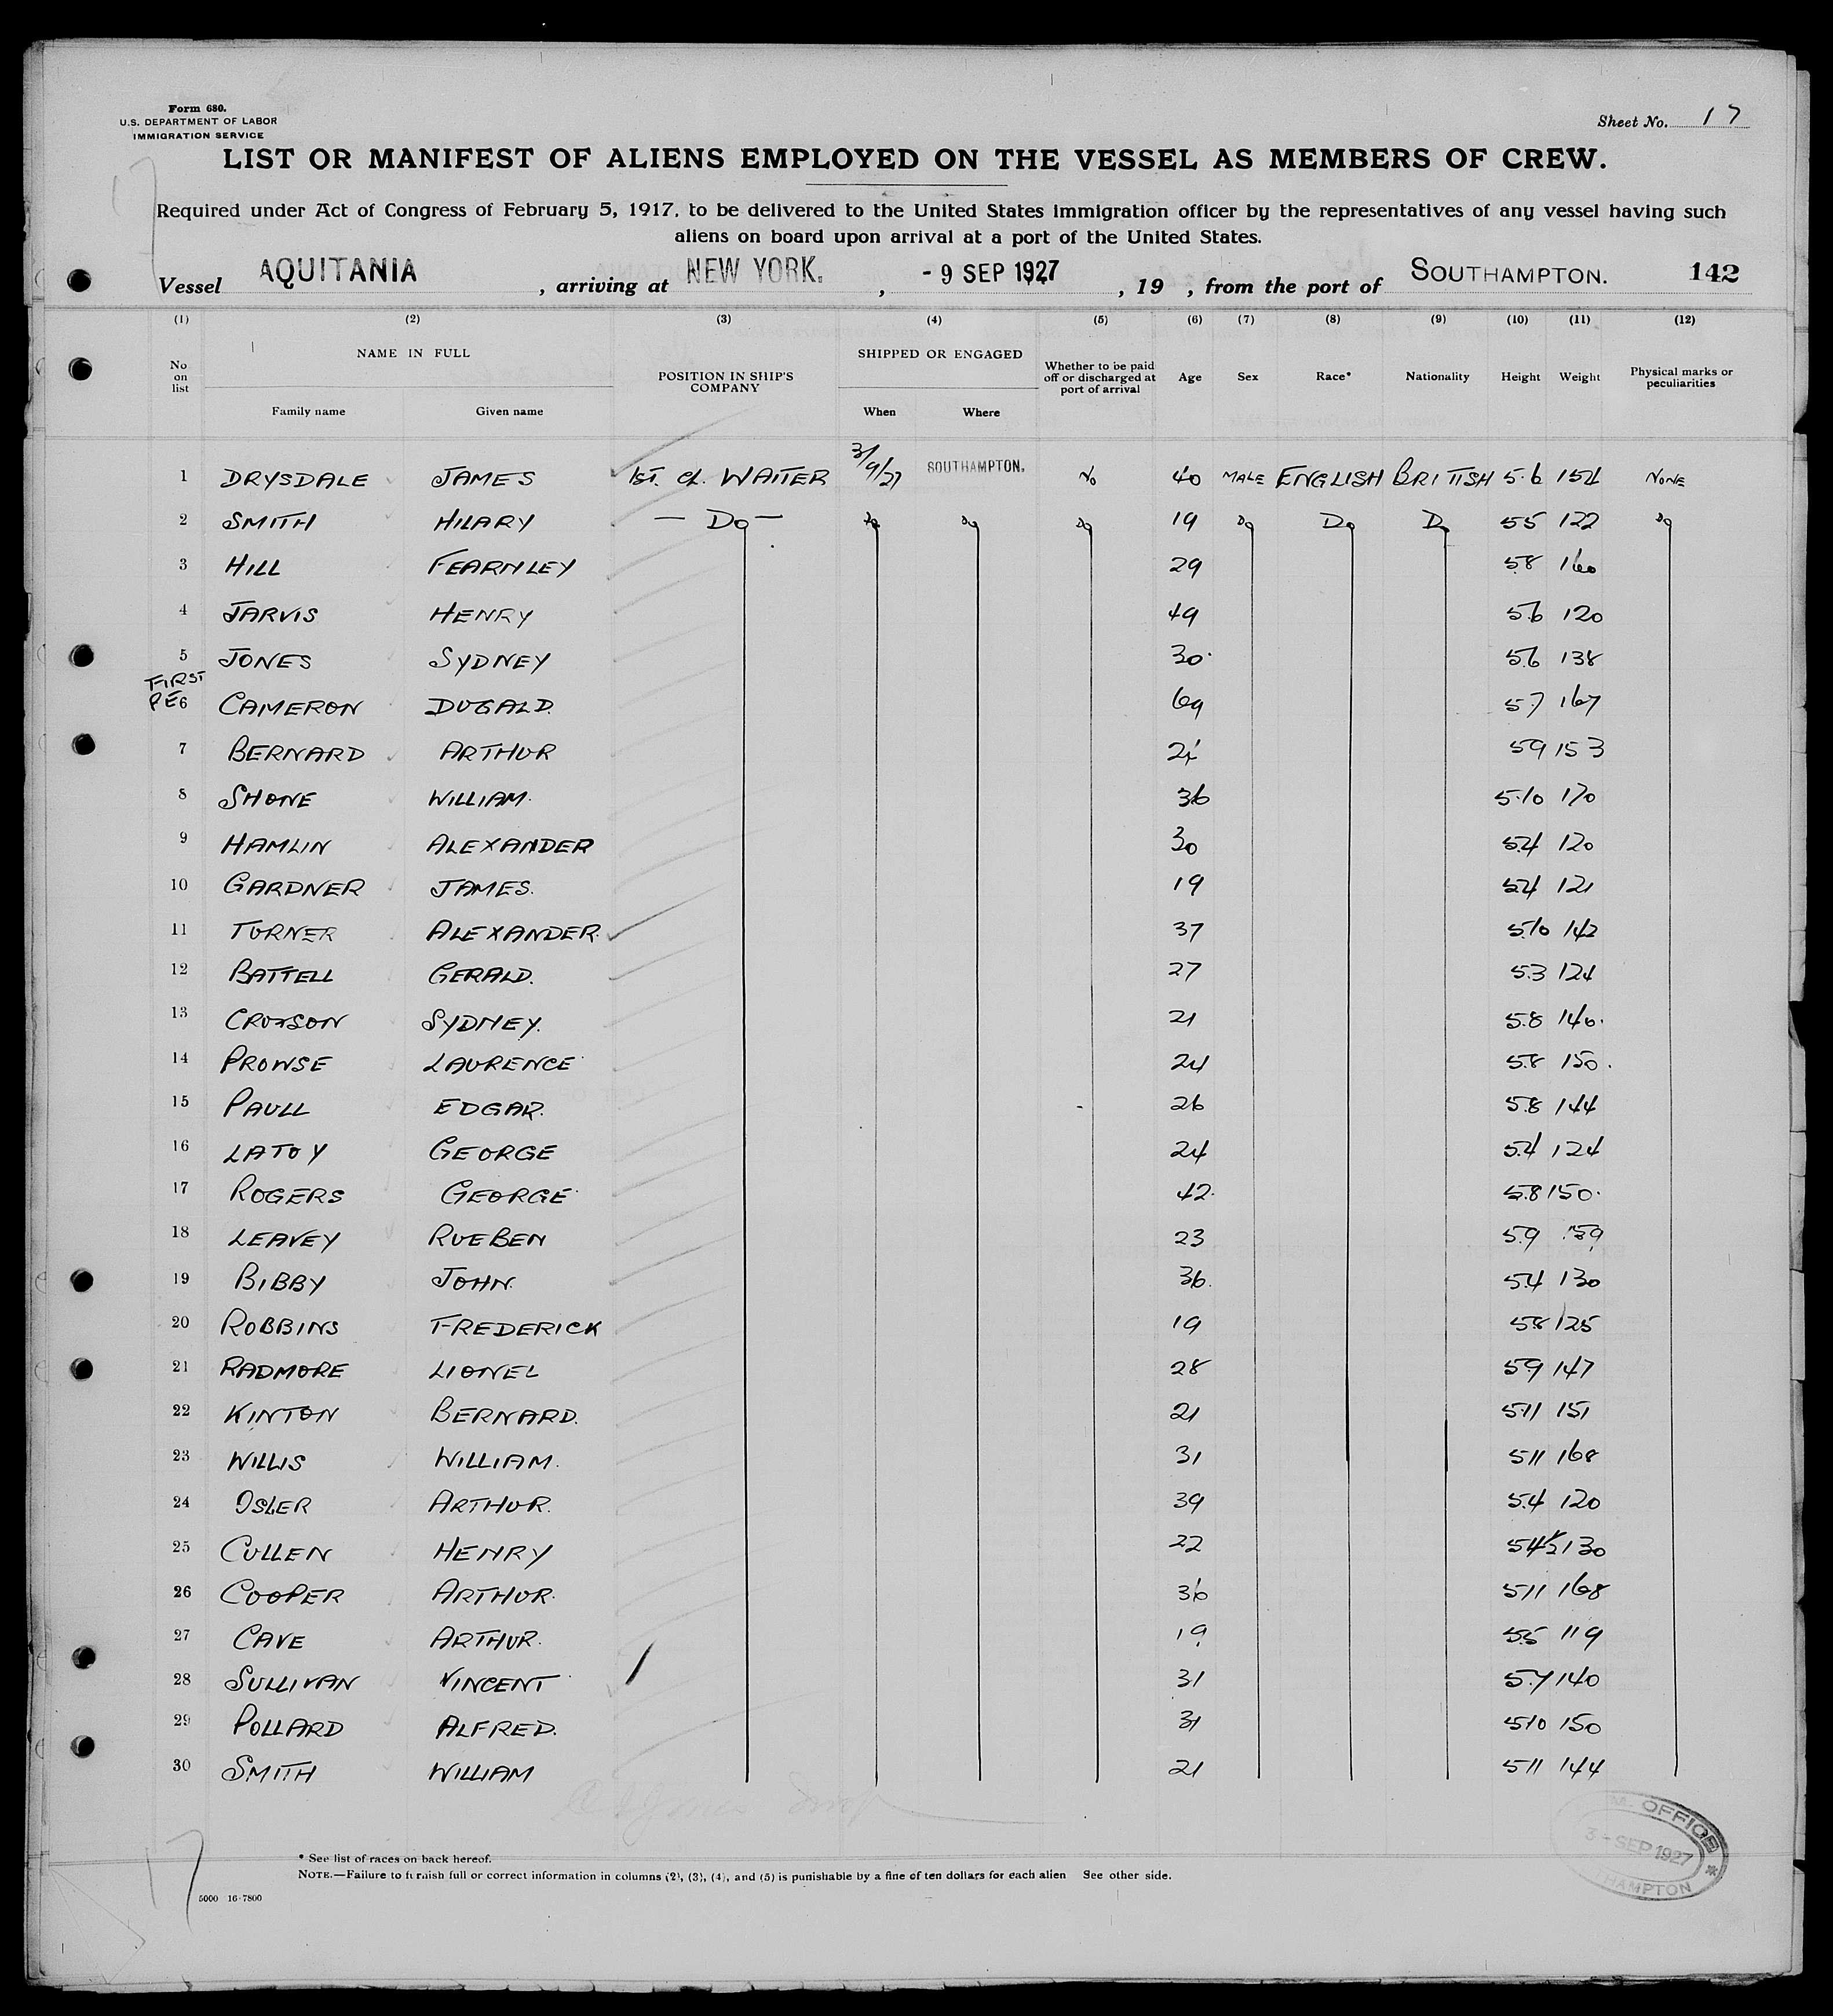 Form 680.
U.S. DEPARTMENT OF LABOR
IMMIGRATION SERVICE
Sheet No. 17
LIST OR MANIFEST OF ALIENS EMPLOYED ON THE VESSEL AS MEMBERS OF CREW.
Required under Act of Congress of February 5, 1917, to be delivered to the United States immigration officer by the representatives of any vessel having such
aliens on board upon arrival at a port of the United States.
Vessel AQUITANIA, arriving at NEW YORK., - 9 SEP 1927, 19 , from the port of SOUTHAMPTON. 142
(1) (2) (3) (4) (5) (6) (7) (8) (9) (10) (11) (12)
No on list NAME IN FULL Family name Given name POSITION IN SHIP'S COMPANY SHIPPED OR ENGAGED When Where Whether to be paid off or discharged at port of arrival Age Sex Race* Nationality Height Weight Physical marks or peculiarities
1 DRYSDALE JAMES 1ST. CL. WAITER 3/9/27 SOUTHAMPTON. No 40 MALE ENGLISH BRITISH 5.6 154 NONE
2 SMITH HILARY — Do — Do Do Do 19 Do Do Do 55 122 Do
3 HILL FEARNLEY 29 58 160
4 JARVIS HENRY 49 5.6 120
5 JONES SYDNEY 30 5.6 138
FIRST
6 CAMERON DUGALD. 69 5.7 167
7 BERNARD ARTHUR 59 153
8 SHONE WILLIAM. 36 5.10 170
9 HAMLIN ALEXANDER 30 5.4 120
10 GARDNER JAMES. 19 5.4 121
11 TURNER ALEXANDER. 37 5.10 142
12 BATTELL GERALD. 27 5.3 124
13 SYDNEY. 21 5.8 140.
14 PROWSE LAURENCE 24 5.8 150.
15 PAULL EDGAR. 26 5.8 144
16 LATOY GEORGE 24 5.4 124
17 ROGERS GEORGE 42. 5.8 150.
18 LEAVEY RUEBEN 23 5.9 159
19 BIBBY JOHN. 36. 5.4 130
20 ROBBINS FREDERICK 19 5.8 125
21 RADMORE LIONEL 28 5.9 147
22 KINTON BERNARD. 21 5.11 151
23 WILLIS WILLIAM. 31 5 11 168
24 OSLER ARTHUR. 39 5.4 120
25 CULLEN HENRY 22 54½ 130
26 COOPER ARTHUR. 36 5 11 168
27 CAVE ARTHUR. 19 5.5 119
28 SULLIVAN VINCENT 31 5.7 140
29 POLLARD ALFRED. 31 5 10 150
30 SMITH WILLIAM 21 5 11 144
* See list of races on back hereof.
NOTE.—Failure to furnish full or correct information in columns (2), (3), (4), and (5) is punishable by a fine of ten dollars for each alien See other side.
5000 16-7800
17
OFFICE
3 - SEP 1927
HAMPTON